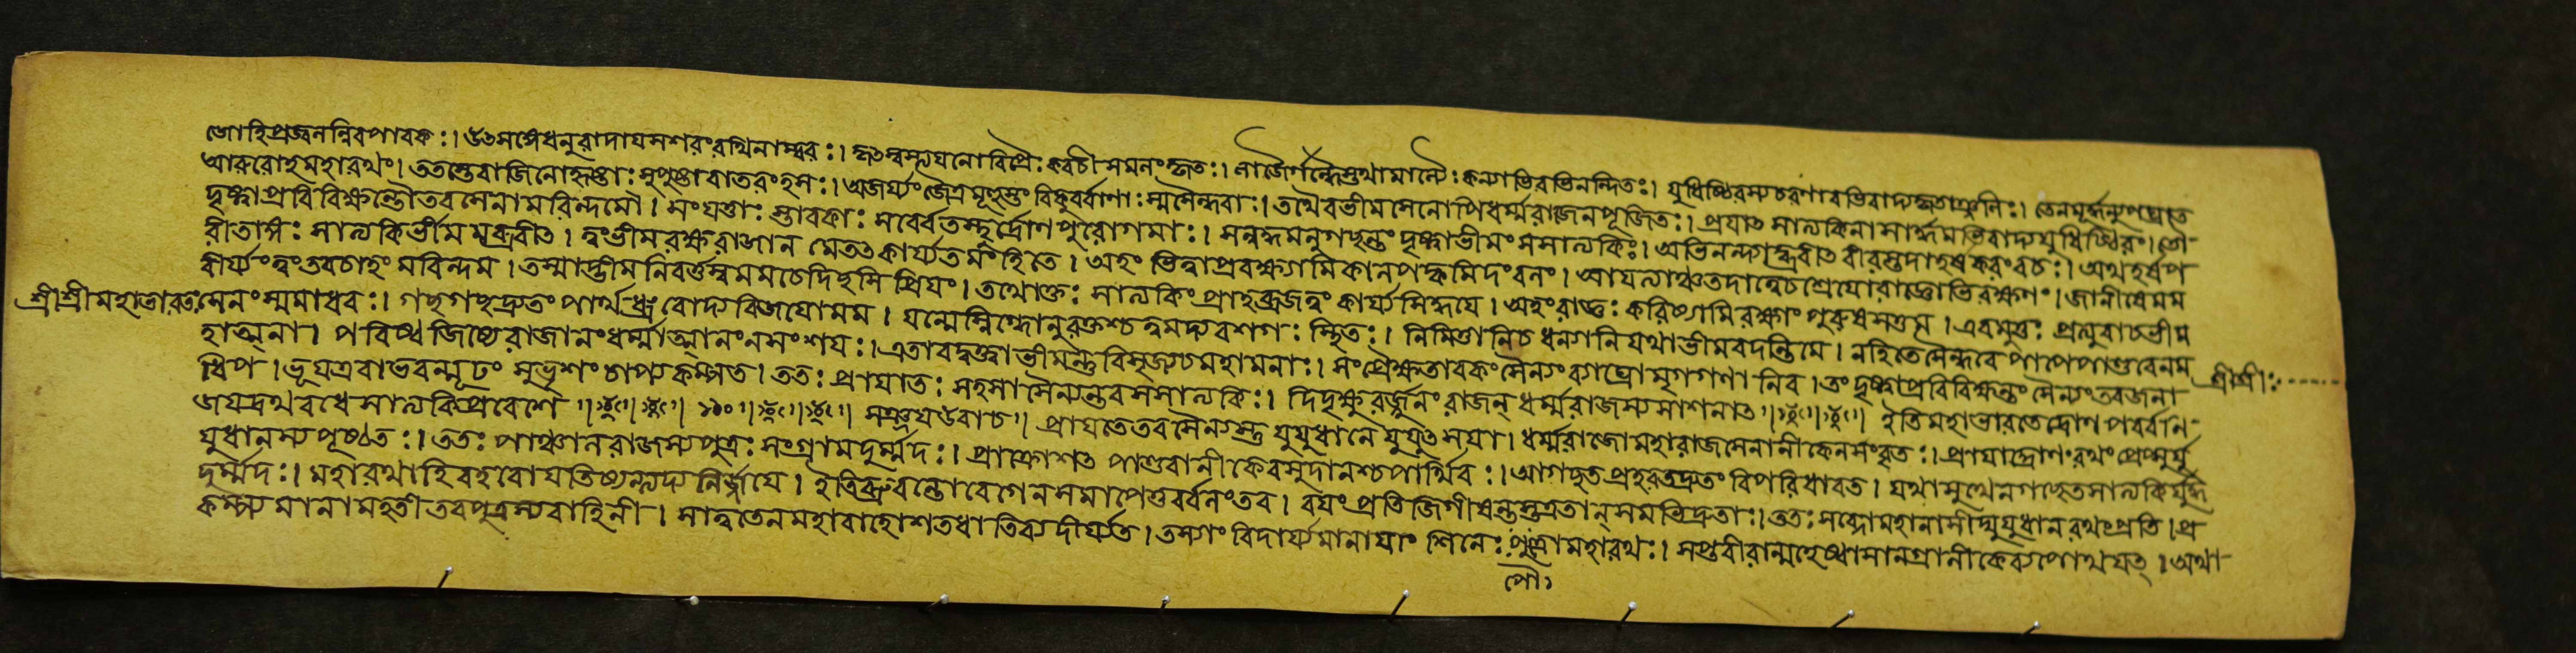 জোহিপ্রজ্বলন্নিবপাবকঃ। উৎসঙ্গেধনুরাদাযসশরংরথিনাম্বরঃ। কৃতস্বস্ত্যযনোবিপ্রৈঃ কবচী সমলংকৃতঃ। লাজৈর্গন্ধৈস্তথামাল্যৈঃ কন্যাভিরভিনন্দিতঃ। যুধিষ্ঠিরস্যচরণাবভিবাদ্যকৃতাঞ্জলিঃ। তেনমূর্দ্ধন্যুপাঘ্রাত
আরুরোহমহারথং। ততস্তেবাজিনোহৃষ্টাঃ সুপুষ্টাবাতরংহসঃ। অজয্যং জৈত্রমূহুস্তং বিকুবর্বাণাঃ স্মসৈন্ধবাঃ। তথৈবভীমসেনোপিধর্ম্মরাজেনপূজিতঃ। প্রযাৎ সাত্যকিনাসার্দ্ধমভিবাদ্যযুধিষ্ঠিরং। তৌ
দৃষ্ট্বাপ্রবিবিক্ষন্তৌতবসেনামরিন্দমৌ। সংযত্তাঃ স্তাবকাঃ সবের্বতস্থুর্দ্রোণপুরোগমাঃ। সন্নদ্ধমনুগছন্তং দৃষ্ট্বাভীমং সসাত্যকিঃ। অভিনন্দ্যাব্রবীৎ বীরস্তদাহর্ষকরংবচঃ। অথহর্ষপ
রীতাঙ্গঃ সাত্যকির্ভীমমব্রবীৎ। ত্বংভীমরক্ষরাজান মেতৎ কার্য্যতমংহিতে। অহং ভিত্বাপ্রবেক্ষ্যামিকালপক্বমিদংবলং। আযত্যাঞ্চতদাত্বেচশ্রেযোরাজ্ঞোভিরক্ষণং। জানীষেমম
বীর্য্যংত্বংতবচাহং মরিন্দম। তস্মাদ্ভীমনিবর্ত্তস্বমমচেদিছসি প্রিযং। তথোক্তঃ সাত্যকিংপ্রাহব্রজত্বং কার্য্যসিদ্ধযে। অহংরাজ্ঞঃ করিষ্যামিরক্ষাং পুরুষসত্তম। এবমুক্তঃ প্রত্যুবাচভীম
শ্রীশ্রীমহাভারত
সেনং সমাধবঃ। গছগছদ্রুতং পার্থধ্রুবোদ্যবিজযোমম। যন্মেস্নিগ্ধোনুরক্তশ্চত্বমদ্যবশগঃ স্থিতঃ। নিমিত্তানিচ ধন্যানিযথাভীমবদন্তিমে। নহিতেসৈন্ধবে পাপেপাণ্ডবেনম
হাত্মনা। পরিষ্বজিষ্যেরাজানংধর্ম্মাত্মানংনসংশযঃ। এতাবদুক্ত্বাভীমন্তুবিসৃজ্যচমহামনাঃ। সংপ্রৈক্ষতাবকংসৈন্যংব্যাঘ্রোমৃগগণানিব। তংদৃষ্ট্বাপ্রবিবিক্ষন্তংসৈন্যংতবজনা
শ্রীশ্রীঃ
ধিপ। ভূযএবাভবন্মূঢং সুভৃশংচাপ্যকম্পত। ততঃ প্রাযাতঃ সহসাসৈন্যন্তবসসাত্যকিঃ। দিদৃক্ষুরর্জ্জুনংরাজন্ ধর্ম্মরাজস্যসাশনাৎ। ইতিমহাভারতেদ্রোণ পবর্বনি
জযদ্রথবধেসাত্যকিপ্রবেশে। সঞ্জযউবাচ। প্রাযতেতবসৈন্যস্তু যুযুধানে যুযুৎসযা। ধর্ম্মরাজোমহারাজসেনানীকেনসংবৃতঃ। প্রাযাদ্দ্রোণংরথং প্রেপ্সুর্যু
যুধানস্যপৃষ্ঠতঃ। ততঃ পাঞ্চালরাজস্যপুত্রঃ সংগ্রামদুর্ম্মদঃ। প্রাক্রোশৎ পাণ্ডবানীকেবসুদানশ্চপার্থিবঃ। আগছতপ্রহরতদ্রুতং বিপরিধাবত। যথাসুখেনগছেতসাত্যকির্যুদ্ধ
দুর্ম্মদঃ। মহারথাহিবহবোযতিষ্যন্ত্যদ্যনির্জ্জযে। ইতিব্রুবন্তোবেগেনসমাপেতুবর্বলংতব। বযংপ্রতিজিগীষন্তস্তত্রতান্ সমভিদ্রুতাঃ। ততঃ শব্দোমহানাসীদ্যুযুধানরথংপ্রতি। প্র
কম্প্যমানামহতী তবপুত্রস্যবাহিনী। সাত্বতেনমহাবাহোশতধাভিব্যদীর্য্যত। তস্যাং বিদার্য্যমানাযাং শিনেঃ পুত্রোমহারথঃ। সপ্তবীরান্মহেষ্বাসানগ্রানীকেব্যপোথযত্। অথা
পৌ